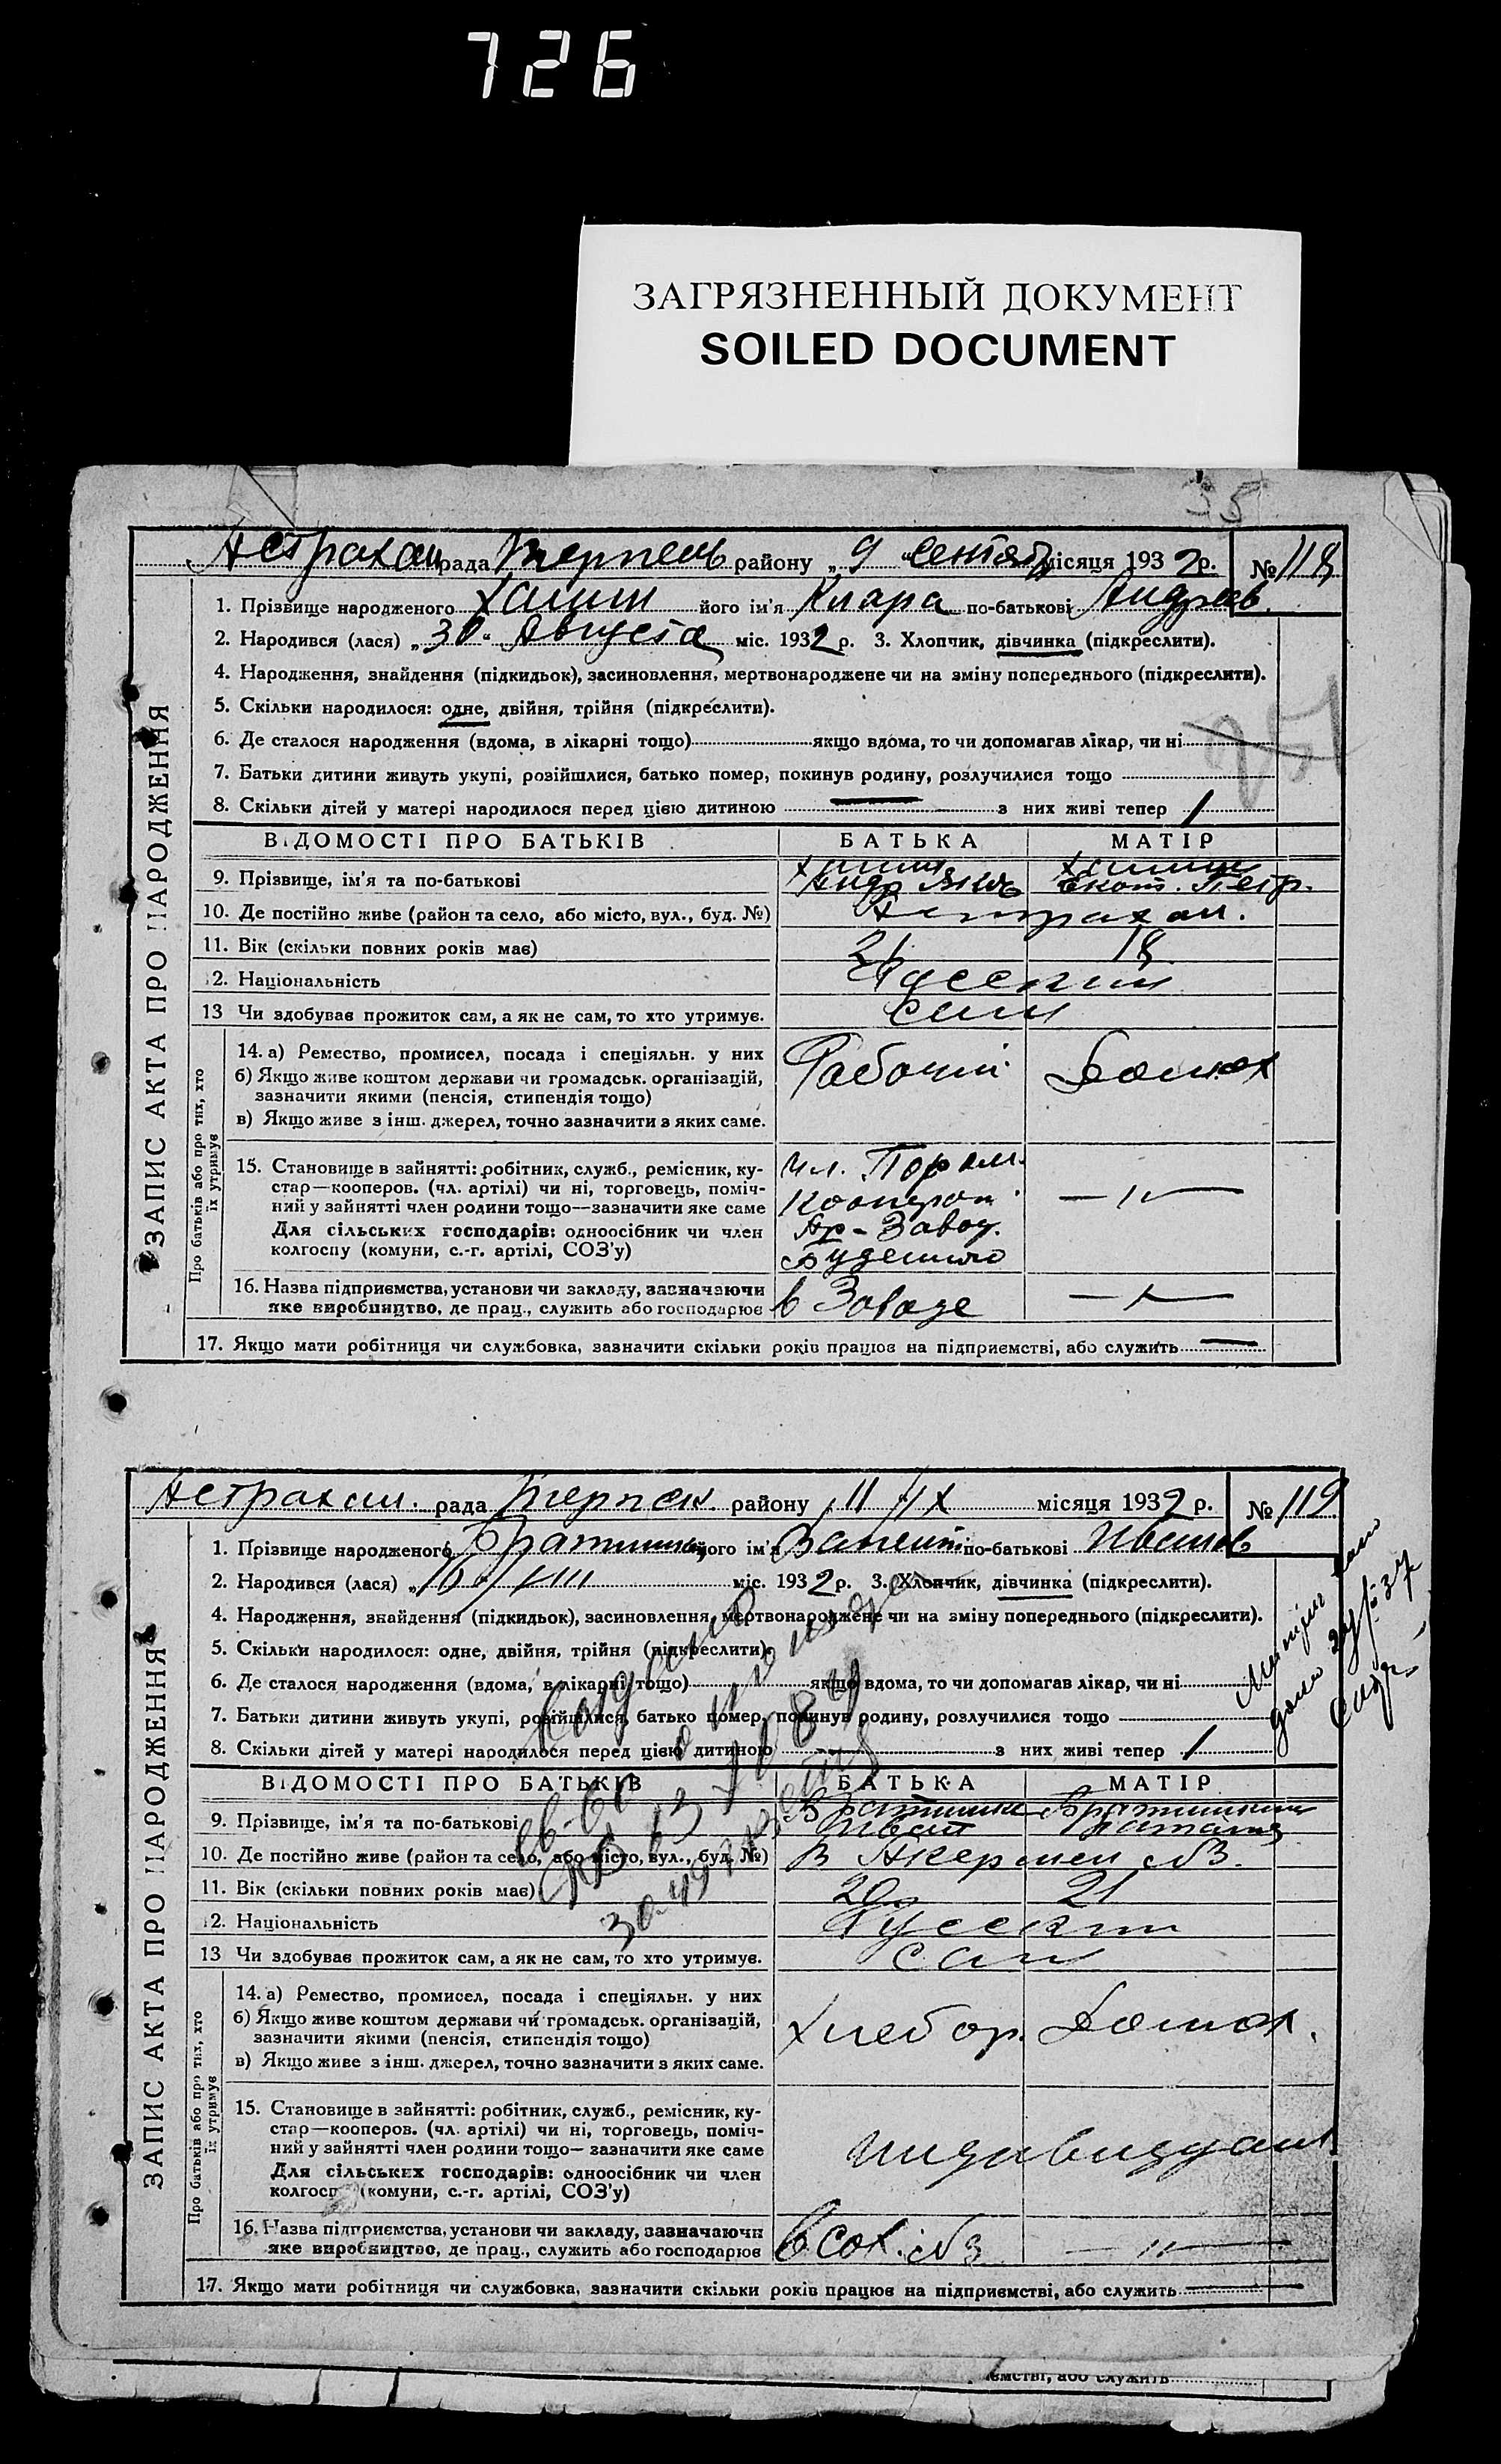 726
ЗАГРЯЗНЕННЫЙ ДОКУМЕНТ
SOILED DOCUMENT
35
ЗАПИС АКТА ПРО НАРОДЖЕННЯ
Астрахан рада Терпень району „ 9 " Сентяб місяця 1932 р. № 118
1. Прізвище народженого його ім'я Клара по-батькові Андреев.
2. Народився (лася) „ 30 " Августа міс. 1932 р. 3. Хлопчик, дівчинка (підкреслити).
4. Народження, знайдення (підкидьок), засиновлення, мертвонароджене чи на зміну попереднього (підкреслити).
5. Скільки народилося: одне, двійня, трійня (підкреслити).
6. Де сталося народження (вдома, в лікарні тощо) якщо вдома, то чи допомагав лікар, чи ні
7. Батьки дитини живуть укупі, розійшлися, батько помер, покинув родину, розлучилися тощо
8. Скільки дітей у матері народилося перед цією дитиною — з них живі тепер 1
ВІДОМОСТІ ПРО БАТЬКІВ БАТЬКА МАТІР
9. Прізвище, ім'я та по-батькові Андр Екат. Петр.
10. Де постійно живе (район та село, або місто, вул., буд. №) Астрахан.
11. Вік (скільки повних років має) 21 18
12. Національність Русский
13 Чи здобував прожиток сам, а як не сам, то хто утримує. Сам
Про батьків або про тих, хто їх утримує
14. а) Ремество, промисел, посада і спеціяльн. у них
б) Якщо живе коштом держави чи громадськ. організацій,
зазначити якими (пенсія, стипендія тощо)
в) Якщо живе з інш. джерел, точно зазначити з яких саме.
Рабочий Домох
15. Становище в зайнятті: робітник, служб., ремісник, ку-
стар—кооперов. (чл. артілі) чи ні, торговець, поміч-
ний у зайнятті член родини тощо—зазначити яке саме
Для сільських господарів: одноосібник чи член
колгоспу (комуни, с.-г. артілі, СОЗ'у)
чл.
Кооперат
Завод
— " —
16. Назва підприємства, установи чи закладу, зазначаючи
яке виробництво, де прац., служить або господарює
в Заводе
17. Якщо мати робітниця чи службовка, зазначити скільки років працює на підприємстві, або служить —
ЗАПИС АКТА ПРО НАРОДЖЕННЯ
Астрахан. рада Терпен. району „ 11 " IX місяця 1932 р. № 119
1. Прізвище народженого його ім'я Валент по-батькові Иванов
2. Народився (лася) „ 10 " VIII міс. 1932 р. 3. Хлопчик, дівчинка (підкреслити).
4. Народження, знайдення (підкидьок), засиновлення, мертвонароджене чи на зміну попереднього (підкреслити).
5. Скільки народилося: одне, двійня, трійня (підкреслити).
6. Де сталося народження (вдома, в лікарні тощо) якщо вдома, то чи допомагав лікар, чи ні
7. Батьки дитини живуть укупі, розійшлися, батько помер, покинув родину, розлучилися тощо
8. Скільки дітей у матері народилося перед цією дитиною — з них живі тепер 1
ВІДОМОСТІ ПРО БАТЬКІВ БАТЬКА МАТІР
9. Прізвище, ім'я та по-батькові Иван Наталия
10. Де постійно живе (район та село, або місто, вул., буд. №) В Акермен №3.
11. Вік (скільки повних років має) 20 21
12. Національність Русский
13 Чи здобував прожиток сам, а як не сам, то хто утримує. Сам
Про батьків або про тих, хто їх утримує
14. а) Ремество, промисел, посада і спеціяльн. у них
б) Якщо живе коштом держави чи громадськ. організацій,
зазначити якими (пенсія, стипендія тощо)
в) Якщо живе з інш. джерел, точно зазначити з яких саме.
Хлебор. Домох.
15. Становище в зайнятті: робітник, служб., ремісник, ку-
стар—кооперов. (чл. артілі) чи ні, торговець, поміч-
ний у зайнятті член родини тощо—зазначити яке саме
Для сільських господарів: одноосібник чи член
колгоспу (комуни, с.-г. артілі, СОЗ'у)
16. Назва підприємства, установи чи закладу, зазначаючи
яке виробництво, де прац., служить або господарює
в Сох. №3 — " —
17. Якщо мати робітниця чи службовка, зазначити скільки років працює на підприємстві, або служить —
ємстві, або служить